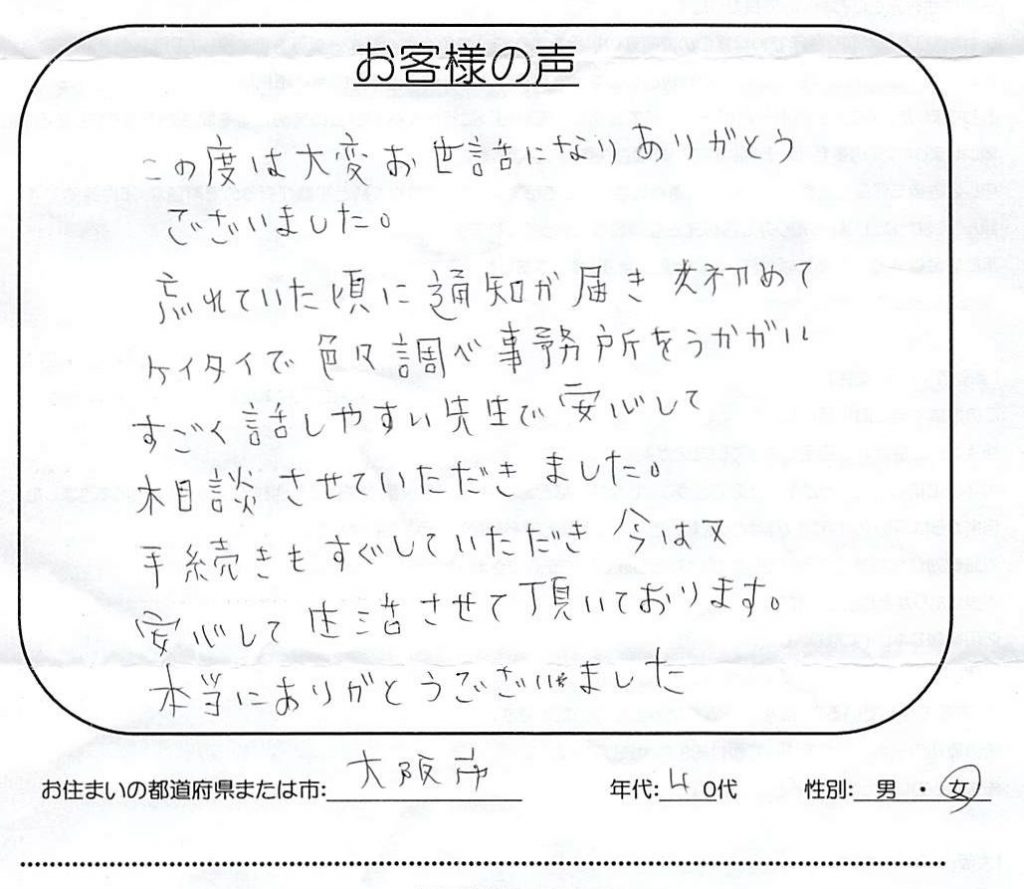 お客様の声
この度は大変お世話になりありがとう
ございました。
忘れていた頃に通知が届き 初めて
ケイタイで 色々調べ事務所をうかがい
すごく話しやすい先生で 安心して
相談させていただき ました。
手続きもすぐしていただき 今は又
安心して 生活させて頂いております。
本当にありがとうございました
お住まいの都道府県または市: 大阪府
年代: 40代
性別: 男 ・ 女